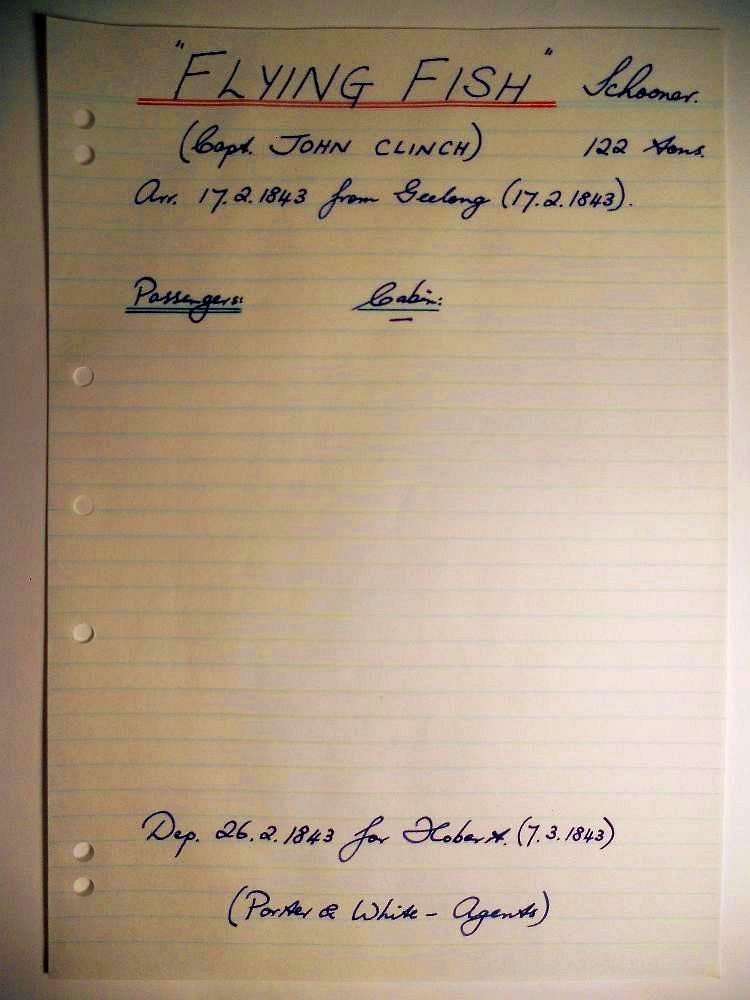 "FLYING FISH" Schooner.
(Capt. JOHN CLINCH) 122 tons.
Arr. 17.2.1843 from Geelong (17.2.1843).
Passengers: Cabin:
—
Dep. 26.2.1843 for Hobart. (7.3.1843)
(Porter & White - Agents)